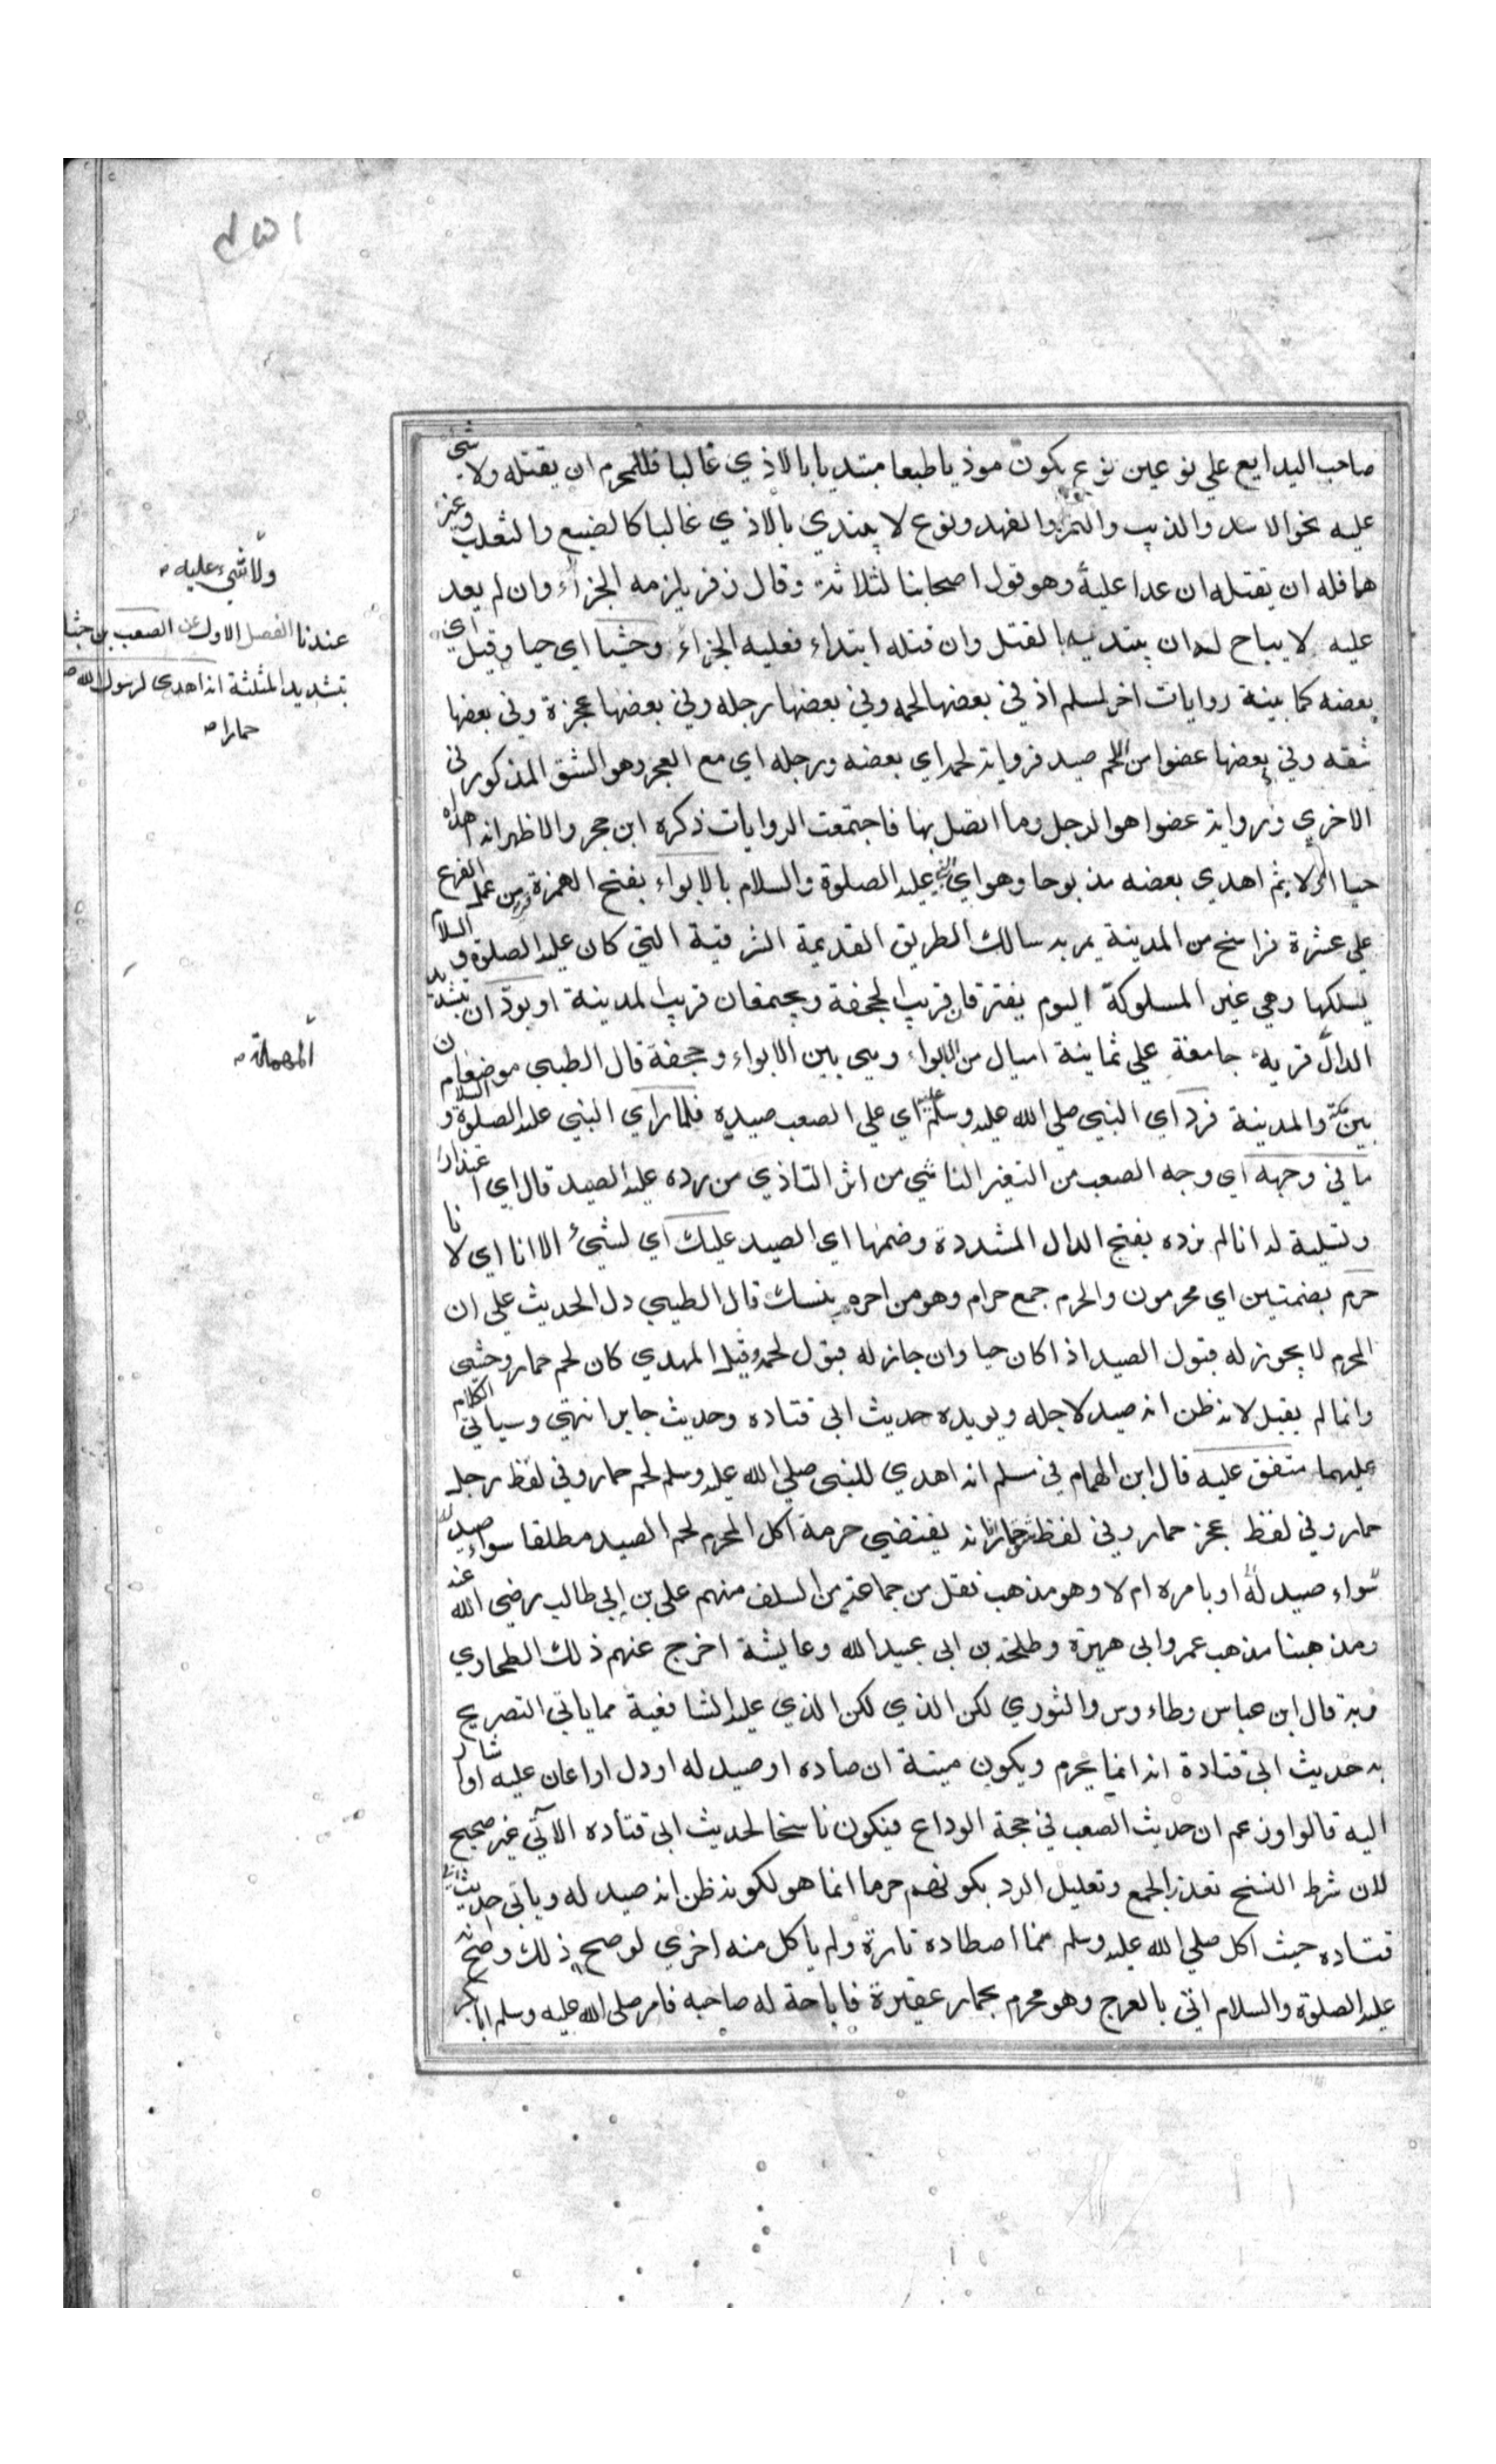 صاحب البدايع علي نوعين نوع يكون موذيا طبعا مبتديا بالاذي غالبا فللمحرم ان يقتله ولا شئ
عليه نحو الاسد والذيب والنمر والفهد ونوع لا يبتدي بالاذي غالبا كالضبع والثعلب وغير
هما فله ان يقتله ان عدا عليه وهو قول اصحابنا لثلاثة وقال زفر يلزمه الجزاء وان لم يعد
عليه لا يباح له ان يبتديه بالقتل وان قتله ابتداء فعليه الجزاء وحشيا اي حيا وقيل اي
بعضه كما بينة روايات اخر لمسلم اذ في بعضها لحمه وفي بعضها رجله وفي بعضها عجزة وفي بعضها
شقه وفي بعضها عضوا من لحم صيد فرواية لحم اي بعضه ورجله اي مع العجز وهو الشق المذكور في
الاخري ورواية عضوا هو الرجل وما اتصل بها فاجتمعت الروايات ذكره ابن حجر والاظهر انه اهداه
حيا اولا ثم اهدي بعضه مذبوحا وهو اي النبي عليه الصلوة والسلام بالابواء بفتح الهمزة من عمل الفرع
علي عشرة فراسخ من المدينة يمر به سالك الطريق القديمة الشرقية التي كان عليه الصلوة و السلام
يسلكها وهي غير المسلوكة اليوم يفترقان قريب الجحفة ويجتمعان قريب المدينة او بودان بتشديد
الدال قرية جامعة علي ثمانية اميال من الابواء وهي بين الابواء وجحفة قال الطيبي موضعان
بين مكة والمدينة فرد اي النبي صلي الله عليه وسلم عليه اي علي الصعب صيده فلما راي النبي عليه الصلوة و السلام
ما في وجهه اي وجه الصعب من التغير الناشي من اثر التاذي من رده عليه الصيد قال اي اعتذارا
وتسلية له انا لم نرده بفتح الدال المشددة وضمها اي الصيد عليك اي لشيء الا انا اي لانا
حرم بضمتين اي محرمون والحرم جمع حرام وهو من احرم بنسك قال الطيبي دل الحديث علي ان
المحرم لا يجوز له قبول الصيد اذا كان حيا وان جاز له قبول لحمه وقيل المهدي كان لحم حمار وحشي
وانما لم يقبل لانه ظن انه صيد لاجله ويويده حديث ابي قتاده وحديث جابر انتهي وسياتي الكلام
عليهما متفق عليه قال ابن الهمام في مسلم انه اهدي للنبي صلي الله عليه وسلم لحم حمار وفي لفظ رجل
حمار وفي لفظ عجز حمار وفي لفظ شق حمار فانه يقتضي حرمة اكل المحرم لحم الصيد مطلقا سواء صيد له
سواء صيد له او بامره ام لا وهو مذهب نقل من جماعة من السلف منهم علي بن ابي طالب رضي الله عنه
ومذهبنا مذهب عمر وابي هريرة وطلحة بن ابي عبيد الله وعايشة اخرج عنهم ذلك الطحاوي
وبه قال ابن عباس وطاءوس والثوري لكن الذي لكن الذي عليه الشافعية مما ياتي التصريح
به حديث ابي قتادة انه انما يحرم ويكون ميتة ان صاده او صيد له او دل او اعان عليه او اشار
اليه قالوا وزعم ان حديث الصعب في حجة الوداع فيكون ناسخا لحديث ابي قتاده الآتي غير صحيح
لان شرط النسخ تعذر الجمع وتعليل الرد بكونهم حرما انما هو لكونه ظن انه صيد له وياتي حديث ابي
قتاده حيث اكل صلي الله عليه وسلم مما اصطاده تارة ولم ياكل منه اخري لو صح ذلك وصح انه
عليه الصلوة والسلام اتي بالعرج وهو محرم بحمار عقيرة فاباحة له صاحبه فامر صلى الله عليه وسلم ابا بكر
ولا شيء عليه
عندنا الفصل الاول عن الصعب بن جثا
بتشديد المثلثة انه اهدى لرسول الله ص
حمارا
المهملة